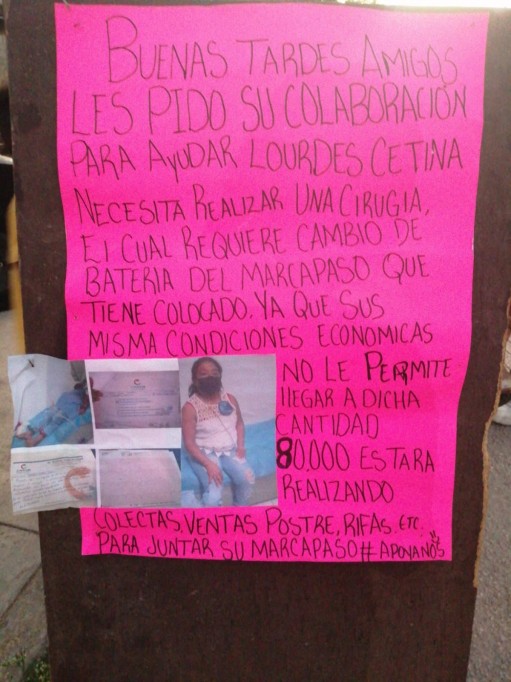 BUENAS TARDES AMIGOS
LES PIDO SU COLABORACIÓN
PARA AYUDAR LOURDES CETINA
NECESITA REALIZAR UNA CIRUGIA,
El CUAL REQUIERE CAMBIO DE
BATERIA DEL MARCAPASO QUE
TIENE COLOCADO. YA QUE SUS
MISMA CONDICIONES ECONOMICAS
NO LE PERMITE
llEGAR A DICHA
CANTIDAD
80,000 ESTARA
REALIZANDO
COLECTAS, VENTAS POSTRE, RIFAS, ETC.
PARA JUNTAR SU MARCAPASO #APOYANOS